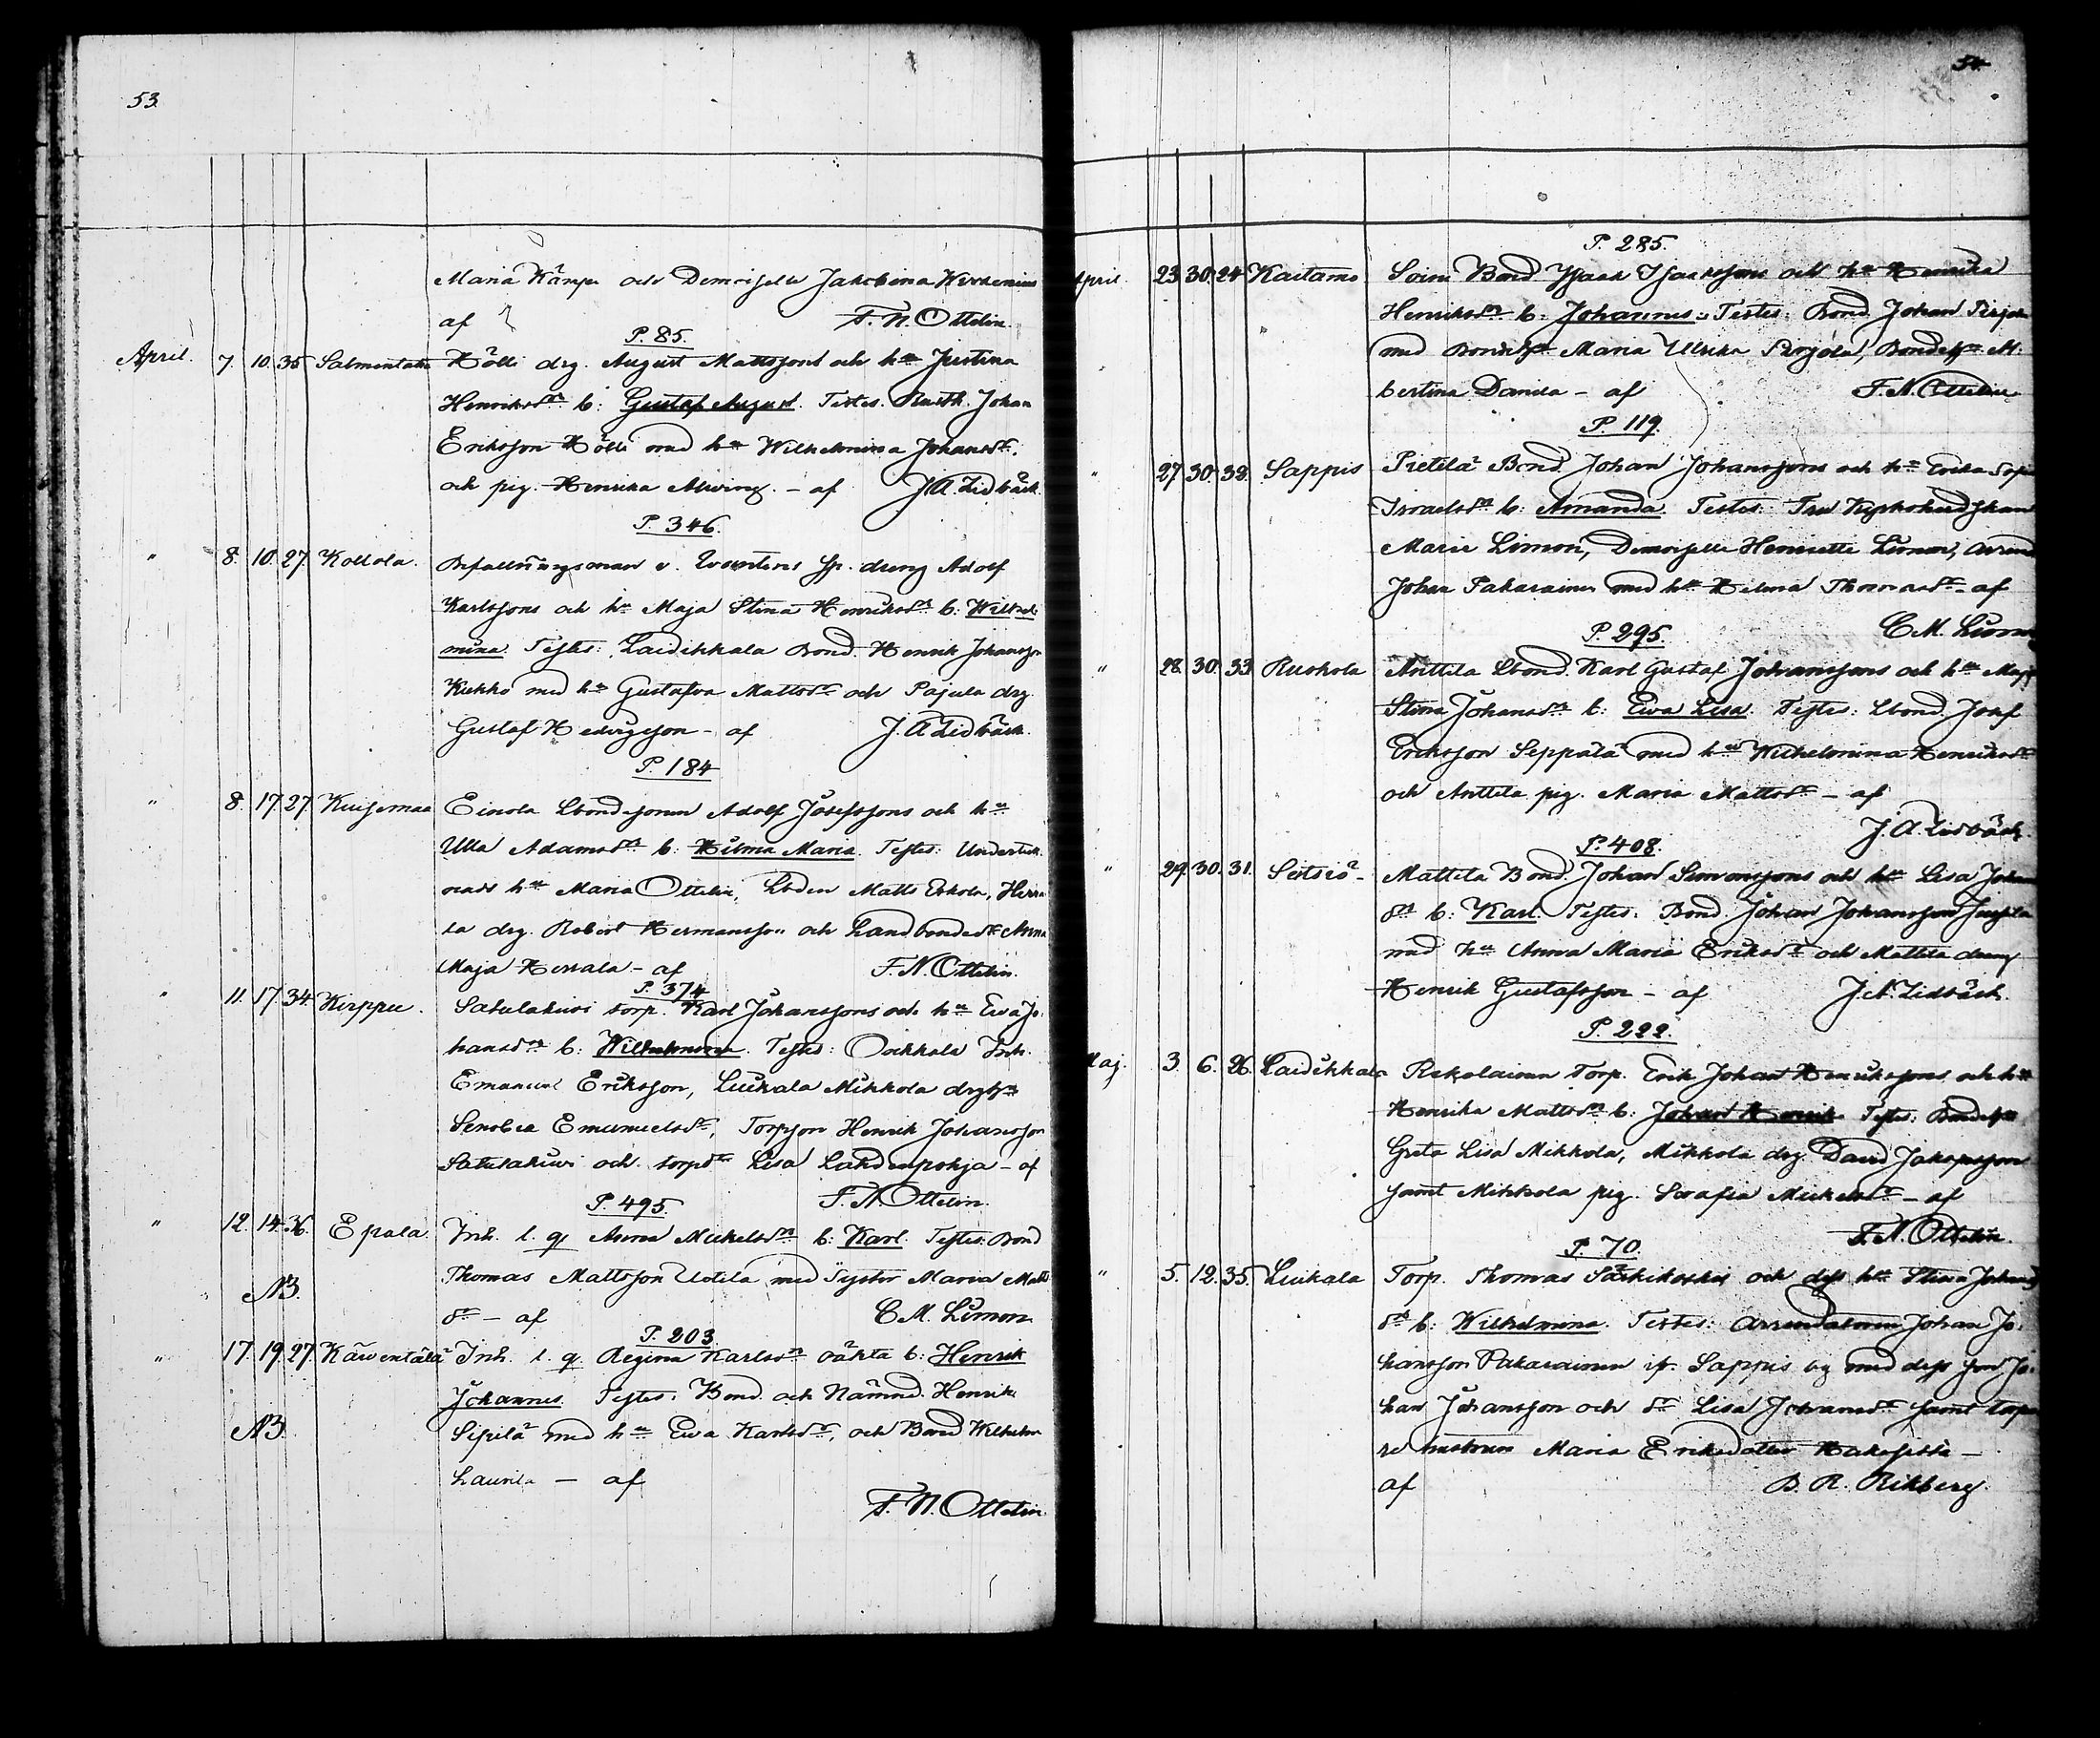 53.
Maria Kämpe och Demoiselle Jakobina
af F. N. Ottelin.
P. 85.
April. 7. 10. 35 Salmentaka Kölli drg. August Mattssons och h:u Justina
Henriksd:rs b: Gustaf August. Testes. Rusth. Johan
Eriksson Kölli med h:u Wilhelmina Johansd:r,
och pig. Henrika Alwing. – af J. A. Lidbäck.
P. 346.
" 8. 10. 27. Kollola. Befallningsman v. dreng Adolf
Karlssons och h:u Maja Stina Henriksd:rs b: Wilhel-
mina. Testes: Laidikkala Bond. Henrik Johansson
Kukko med h:u Gustafva Mattsd:r och Pajula drg.
Gustaf Hedvigsson – af J. A. Lidbäck.
P. 184
" 8. 17. 27 Kuisemaa Eirola Lbondesonen Adolf Josefssons och h:u
Ulla Adamsd:rs b: Hilma Maria. Testes: Undertek-
nads h:u Maria Ottelin, Lbden Matts Erkola, Herra-
la drg. Robert Hermansson och Landbonded:r Anna
Maja Herrala – af F. N. Ottelin.
P. 374
" 11. 17. 34. Kirppu. Satulakivi torp. Karl Johanssons och h:u Eva Jo-
hansd:rs b: Wilhelmina. Testes: Oikkala Inh.
Emanuel Eriksson, Luikala Mikkola drgh:u
Senobia Emanuelsd:r, Torpson Henrik Johansson
Satulakivi och torpd:r Lisa Lahdenpohja – af
P. 495. F. N. Ottelin.
" 12. 14. 36. Epala. Inh. l. q. Anna Mickelsd:rs b: Karl. Testes: Bond
Thomas Mattsson Uotila med Syster Maria Matts-
NB.
d:r – af C. M. Limon
P. 203.
" 17. 19. 27. Käiventälä Inh. l. q. Regina Karlsd:rs oäkta b: Henrik
Johannes. Testes: Bond. och Nämnd. Henrik
NB.
Sipilä med h:u Eva Karlsd:r, och Bond Wilhelm
Laurila – af
F. N. Ottelin.
54.
P. 285.
April. 23. 30. 24 Kaitamo Soini Bond Isaak Isakssons och h:u Henrika
Henriksd:rs b: Johannes. Testes: Bond. Johan Pirjola
med Bondeh:u Maria Ulrika Pirjola, Bondeh:u Al-
bertina Danila – af F. N. Ottelin.
P. 119.
" 27. 30. 38. Sappis Pietilä Bond. Johan Johanssons och h:u Erika Sofia
Israelsd:rs b: Amanda. Testes: Fru
Marie Limon, Demoiselle Henriette Limon, Arrend
Johan Pakarainen med h:u Helena Thomasd:r – af
P. 295. C. M. Limon
" 28. 30. 33 Ruokola Anttila Lbond. Karl Gustaf Johanssons och h:u Maja
Stina Johansd:rs b: Ewa Lisa. Testes: Lbond. Josef
Eriksson Seppälä med h:u Wilhelmina Henriksd:r
och Anttila pig. Maria Mattsd:r – af
J. A. Lidbäck.
P. 408.
" 29. 30. 31. Seitsiö – Mattila Bond. Johan Simonssons och h:u Lisa Johans-
d:rs b: Karl. Testes: Bond. Johan Johansson
med h:u Anna Maria Eriksd:r och Mattila dreng
Henrik Gustafsson – af J. A. Lidbäck.
P. 222.
Maj. 3. 6. 26. Laidikkala Rekolainen Torp. Erik Johan Henrikssons och h:u
Henrika Mattsd:rs b: Johan Henrik Testes: Bondeh:u
Greta Lisa Mikkola, Mikkola drg. David Jakopsson
samt Mikkola pig. Serafia Mickelsd:r – af
P. 70. F. N. Ottelin.
" 5. 12. 35. Luikala Torp. Thomas Särkikoskis och dess h:u Stina Johans-
d:rs b: Wilhelmina. Testes: Arrendatoren Johan Jo-
hansson Pakarainen ifr. Sappis by med dess son Jo-
han Johansson och d:r Lisa Johansd:r samt torpa-
re hustrun Maria Eriksdotter –
af B. R. Rikberg.